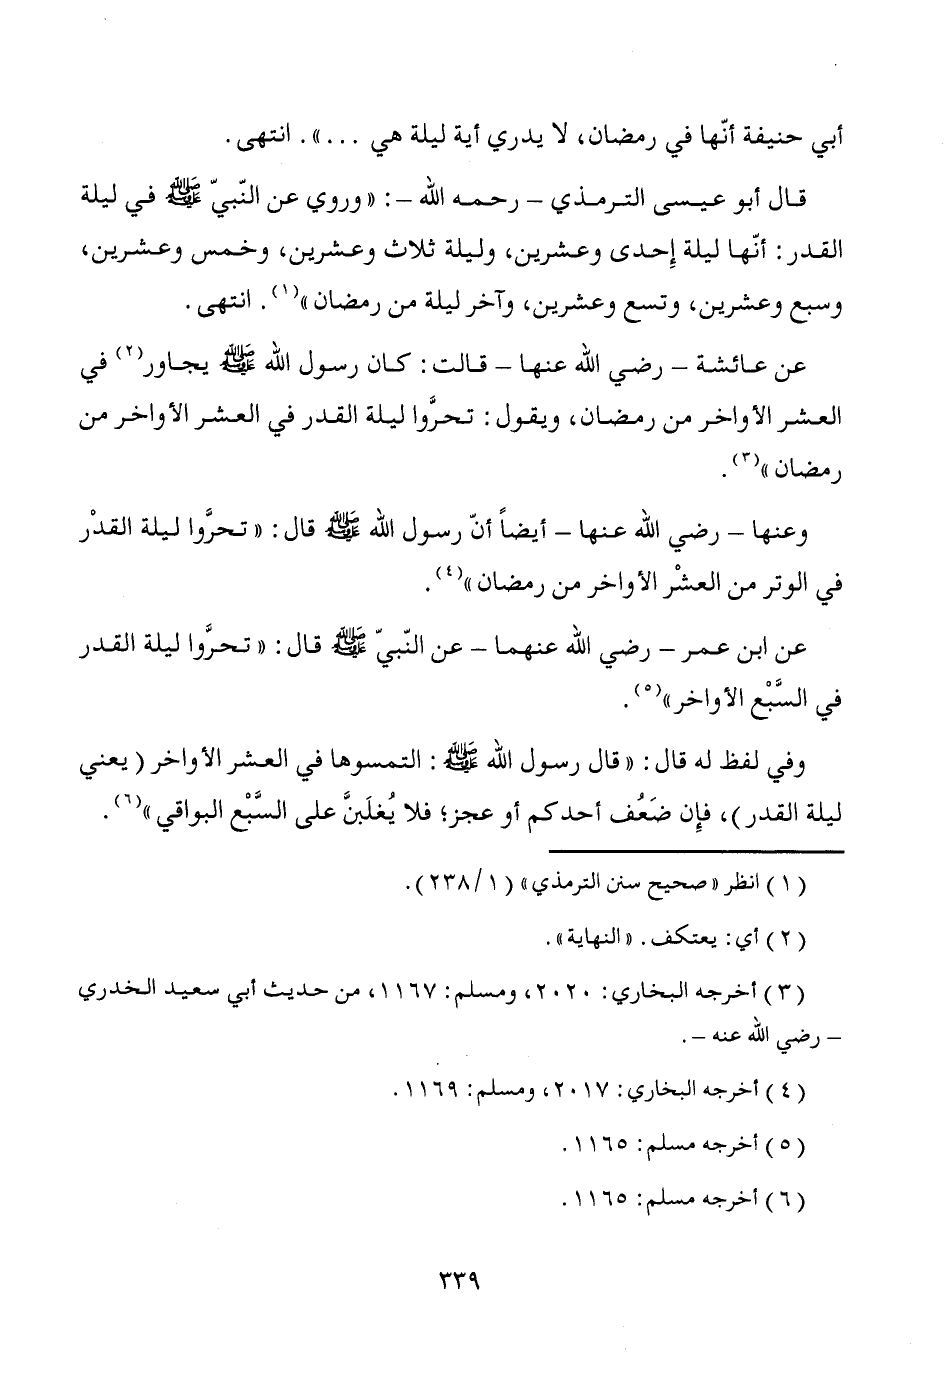 أبي حنيفة أنّها في رمضان، لا يدري أية ليلة هي ...». انتهى.
قال أبو عيسى الترمذي - رحمه الله -: «وروي عن النّبيّ ﷺ في ليلة
القدر: أنّها ليلة إحدى وعشرين، وليلة ثلاث وعشرين، وخمس وعشرين،
وسبع وعشرين، وتسع وعشرين، وآخر ليلة من رمضان»(١). انتهى.
عن عائشة - رضي الله عنها - قالت: كان رسول الله ﷺ يجاور(٢) في
العشر الأواخر من رمضان، ويقول: تحرَّوا ليلة القدر في العشر الأواخر من
رمضان»(٣).
وعنها - رضي الله عنها - أيضاً أنّ رسول الله ﷺ قال: «تحرَّوا ليلة القدْر
في الوتر من العشْر الأواخر من رمضان»(٤).
عن ابن عمر - رضي الله عنهما - عن النّبيّ ﷺ قال: «تحرَّوا ليلة القدر
في السَّبْع الأواخر»(٥).
وفي لفظ له قال: «قال رسول الله ﷺ: التمسوها في العشر الأواخر (يعني
ليلة القدر)، فإِن ضَعُف أحدكم أو عجز؛ فلا يُغلَبنَّ على السَّبْع البواقي»(٦).
(١) انظر «صحيح سنن الترمذي» (١/ ٢٣٨).
(٢) أي: يعتكف. «النهاية».
(٣) أخرجه البخاري: ٢٠٢٠، ومسلم: ١١٦٧، من حديث أبي سعيد الخدري
- رضي الله عنه -.
(٤) أخرجه البخاري: ٢٠١٧، ومسلم: ١١٦٩.
(٥) أخرجه مسلم: ١١٦٥.
(٦) أخرجه مسلم: ١١٦٥.
٣٣٩